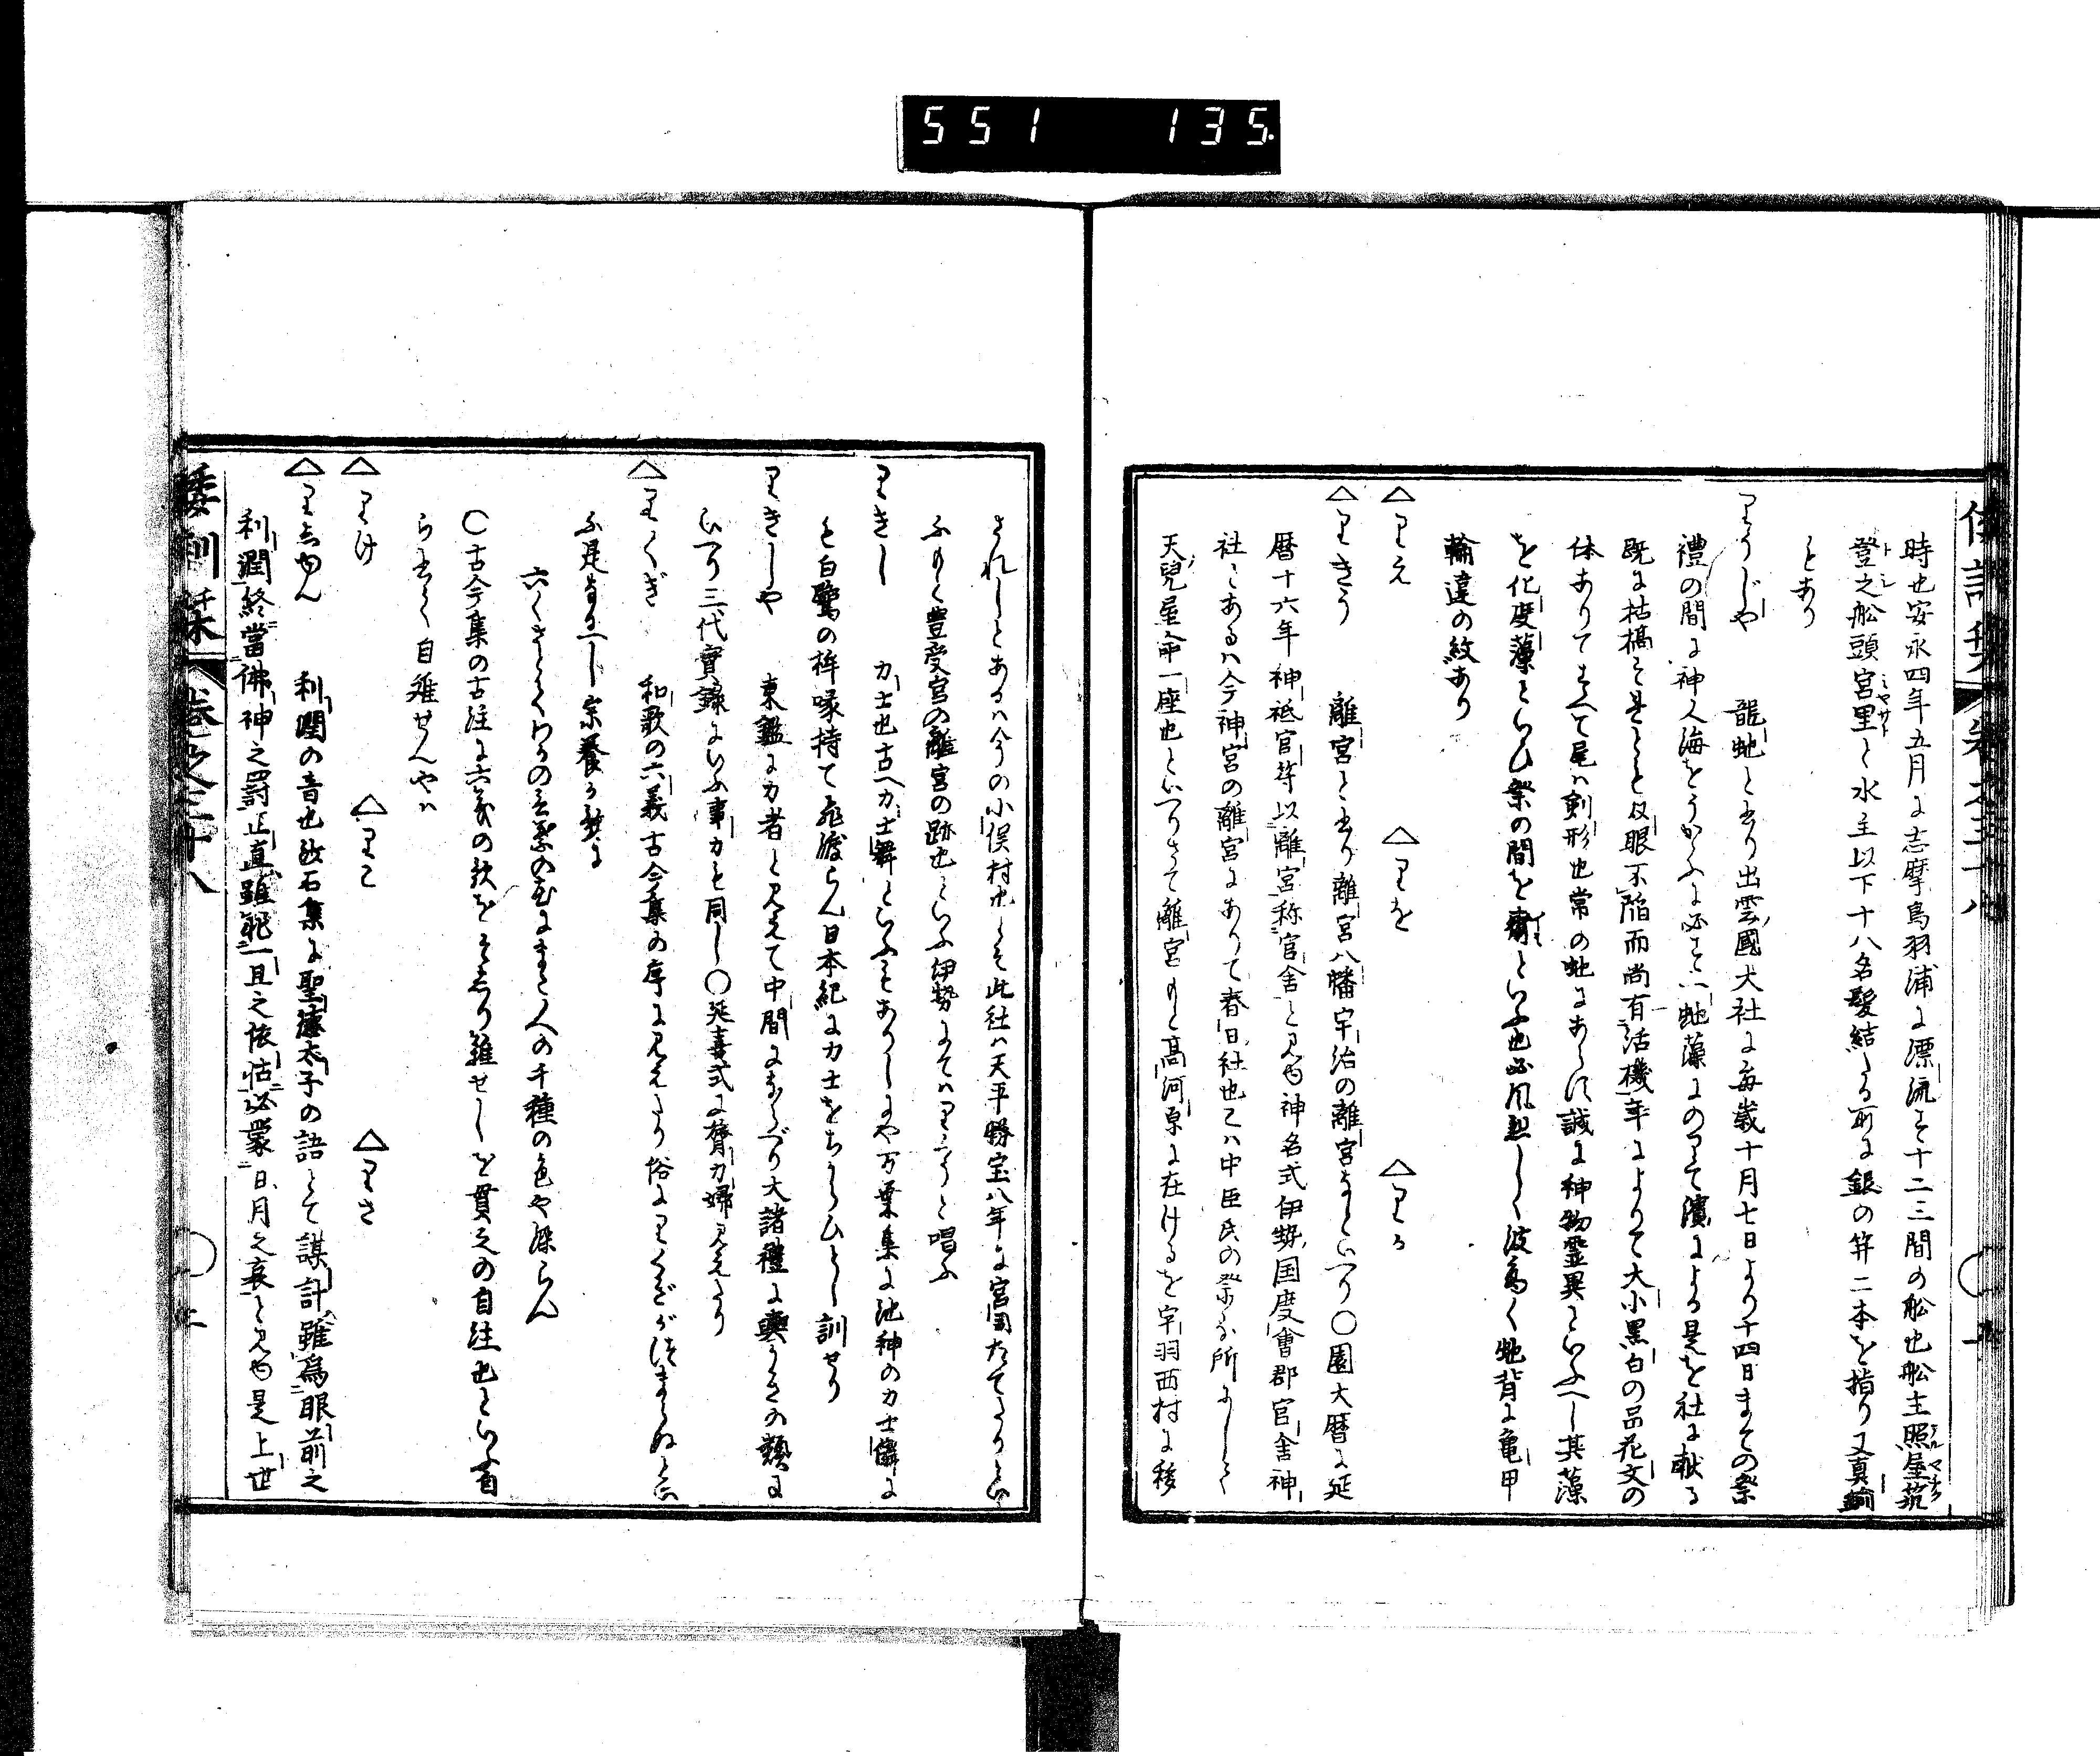 551 135
時也安永四年五月に志摩鳥羽浦に漂流す十二三間の舩也舩主照屋筑
登之舩頭宮里と水主以下十八名髪結たる所に銀の笄二本を指り又真鍮
とあり
りうじや 龍虵と書り出雲國大社に毎歳十月七日より十四日まての祭
禮の間に神人海をうかゝふに必さゝ虵藻にのりて濱による是を社に献る
既に枯槁すといへとも眼不陷而尚有活機年によりて大小黒白の品花文の
体ありてすへて尾ハ剣形也常の虵にあらす誠に神物霊異といふへし其藻
を化度藻といひ祭の間を齋といふ也必風烈しく波高く虵背に亀甲
輪違の紋あり
△りえ △りを △りか
△りきう 離宮と書り離宮八幡宇治の離宮なといへり〇園大暦に延
暦十六年神祇官等以離宮称官舎と見ゆ神名式伊勢国度會郡官舎神
社とあるハ今神宮の離宮にありて春日社也こハ中臣氏の祭る所にして
天兒屋命一座也といへりさて離宮もと高河原に在けるを宇羽西村に移
されしとあるハ今の小俣村也とそ此社ハ天平勝宝八年に宮国たてたりといふ
ふもく豊受宮の離宮の跡也といふ伊勢にてハりうと唱ふ
りきし 力士也古へ力士舞といふ事ありしにや万葉集に池神の力士儛に
も白鷺の桙啄持て飛渡らん日本紀に力士をちからひとし訓せり
りきしや 東鑑に力者と見えて中間にならへり大諸禮に輿かきの類に
いへり三代實録にいふ事力も同し〇延喜式に膂力婦見えたり
△りくぎ 和歌の六義古今集の序に見えたり俗にりくぎがつまらぬと云
ふ是なるへし宗養か歌に
六くさとくわかの言葉の色にまた人の千種の色や深らん
〇古今集の古注に六義の歌をそしり難せしを貫之の自注也といふ首
ら書て自難せんやハ
△りけ △りこ △りさ
△りしゆん 利潤の音也沙石集に聖徳太子の語とて謀計雖爲眼前之
利潤終當佛神之罰正直雖非一旦之依怙必蒙日月之哀と見ゆ是上世
倭訓栞 卷之三十八